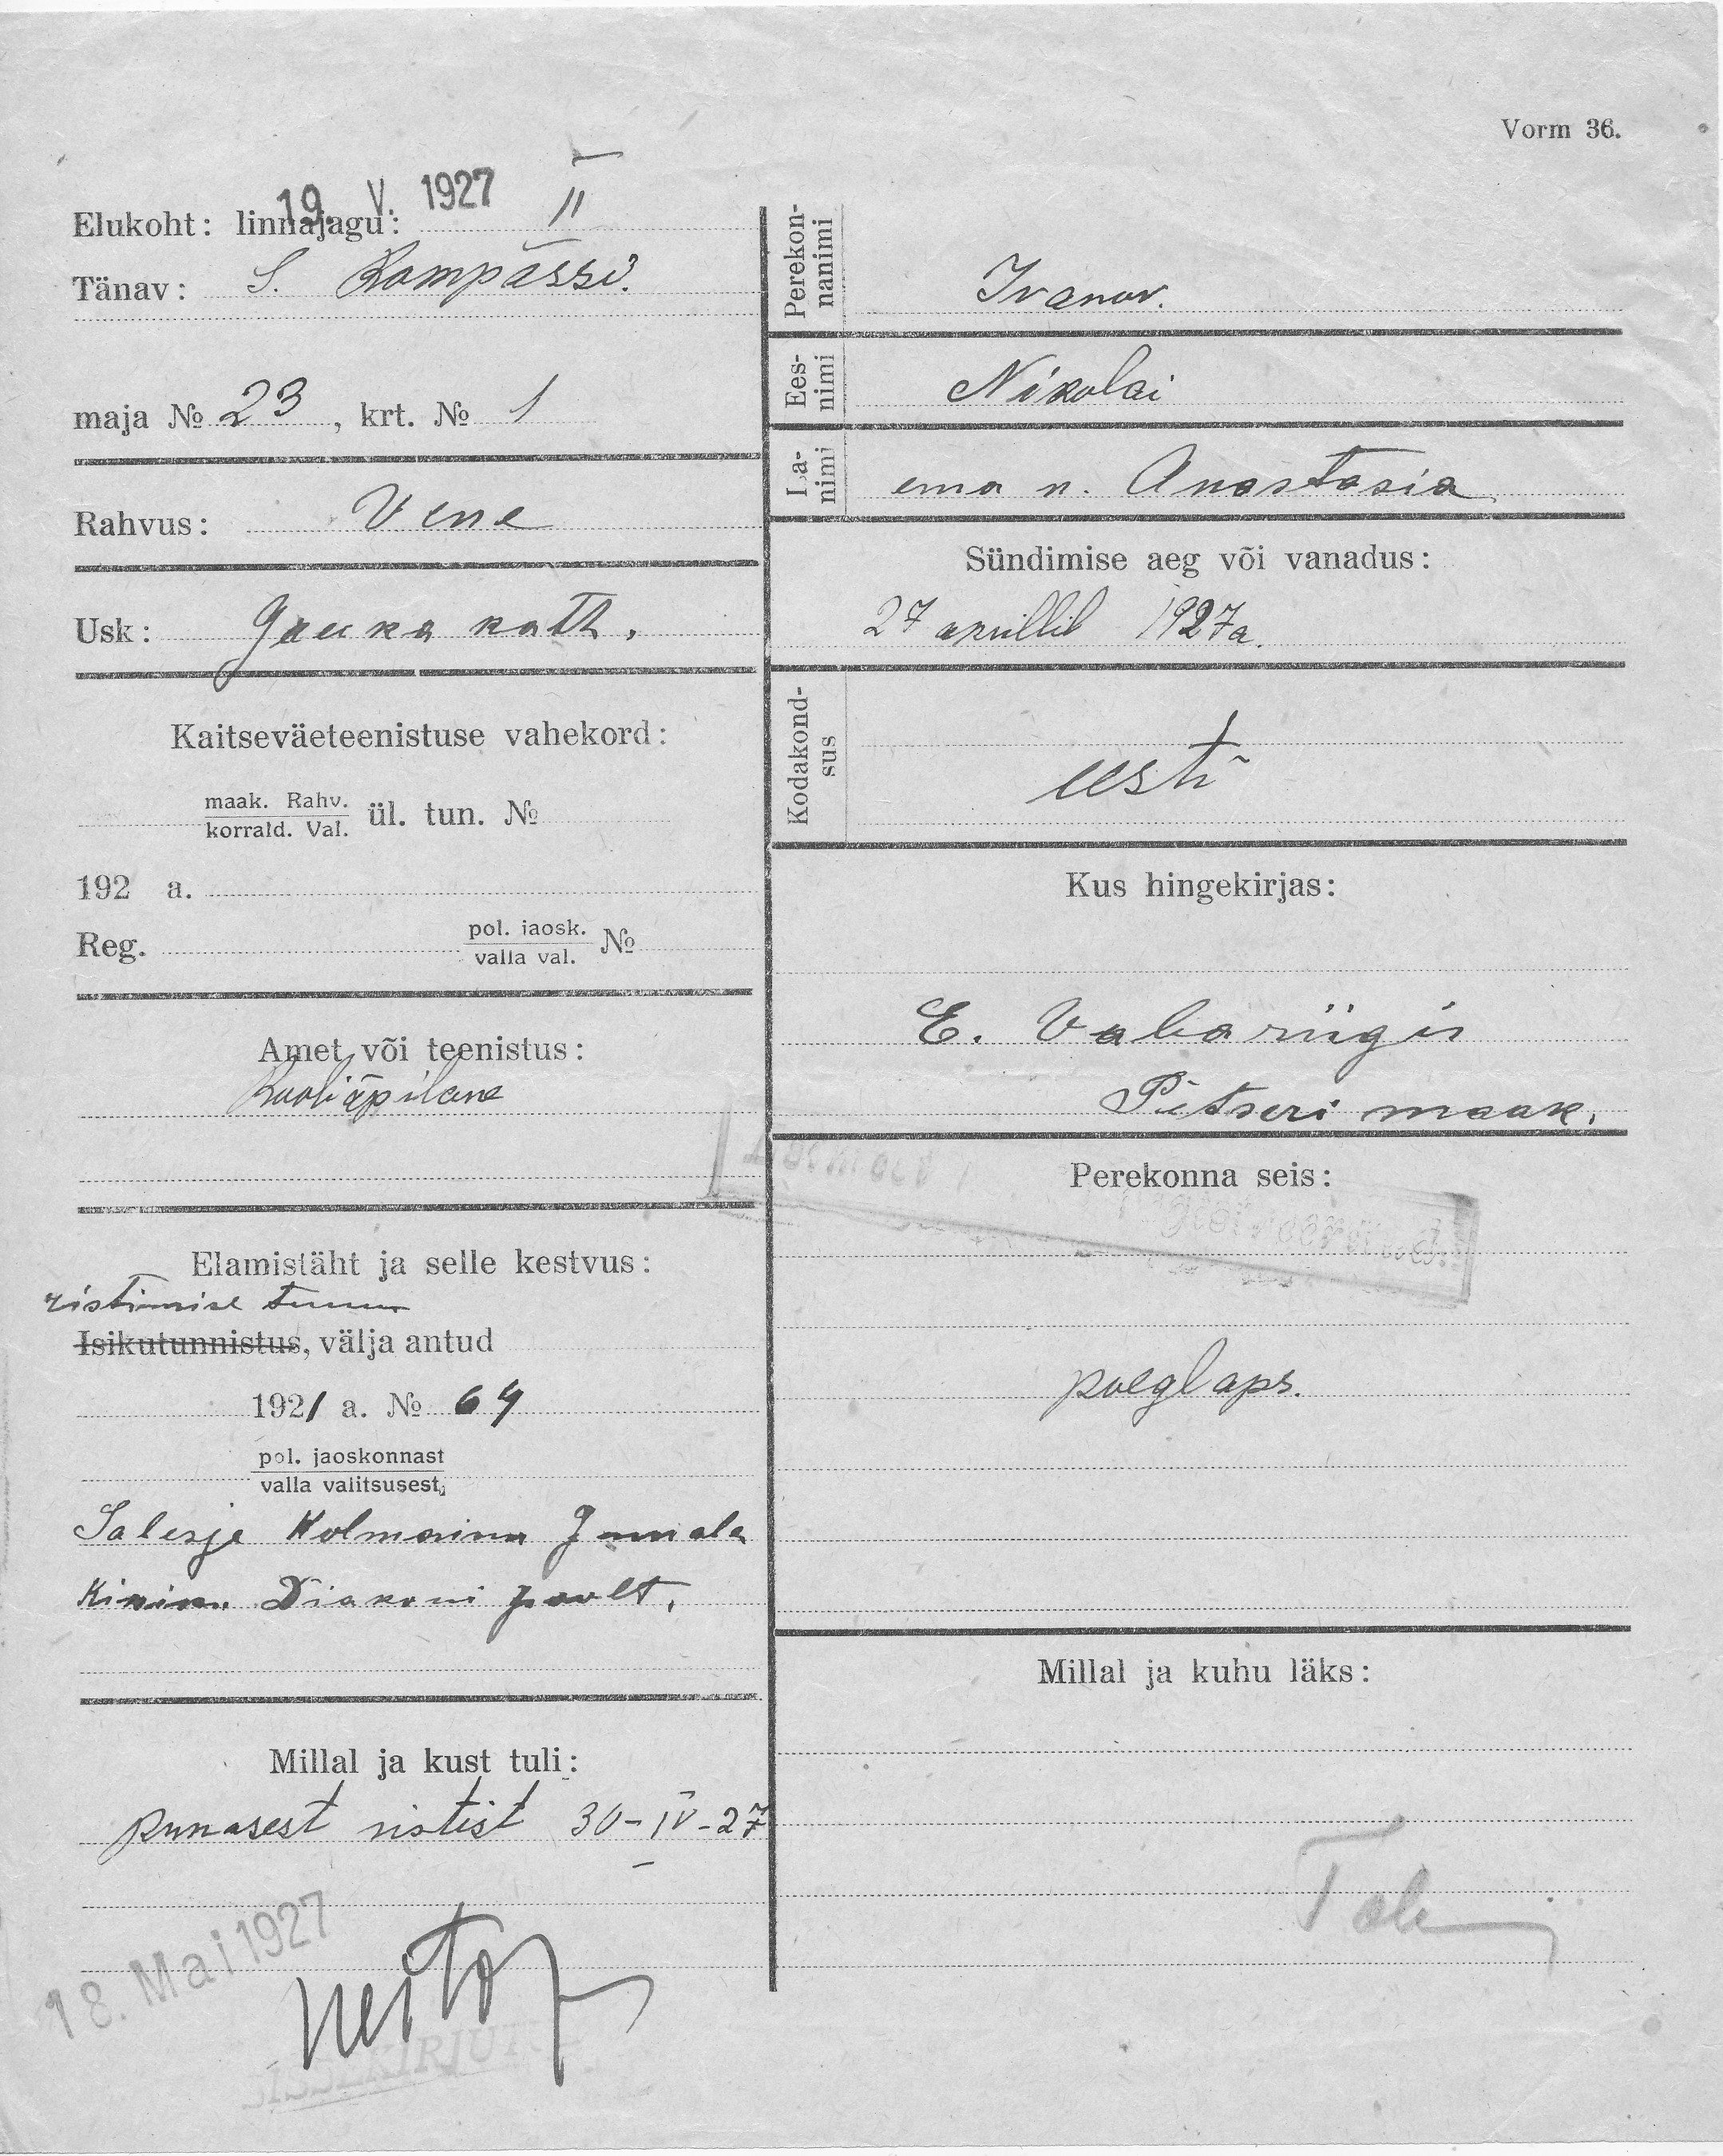 Vorm 36.
19. V. 1927
Elukoht: linnajagu: II
Tänav: S. Kompassi.
maja № 23, krt. № 1
Rahvus: Vene
Usk: Greeka kath.
Kaitseväeteenistuse vahekord:
maak. Rahv.
korrald. Val.
ül. tun. №
192 a.
Reg.
pol. jaosk.
valla val.
№
Amet või teenistus:
Kooliõpilane
Elamistäht ja selle kestvus:
ristimise tunn
Isikutunnistus, välja antud
1921 a. № 64
pol. jaoskonnast
valla valitsusest,
Salesje Kolmainu Jumala
Kiriku Diakoni poolt.
Millal ja kust tuli:
punasest ristist 30-IV-27
18. Mai 1927
SISSEKIRJUT
Perekon-
nanimi
Ivanov.
Ees-
nimi
Nikolai
Isa-
nimi
ema n. Anastasia
Sündimise aeg või vanadus:
27 aprillil 1927a.
Kodakond-
sus
eesti
Kus hingekirjas:
E. Vabariigis
Petseri maak.
Perekonna seis:
poeglaps.
Millal ja kuhu läks: